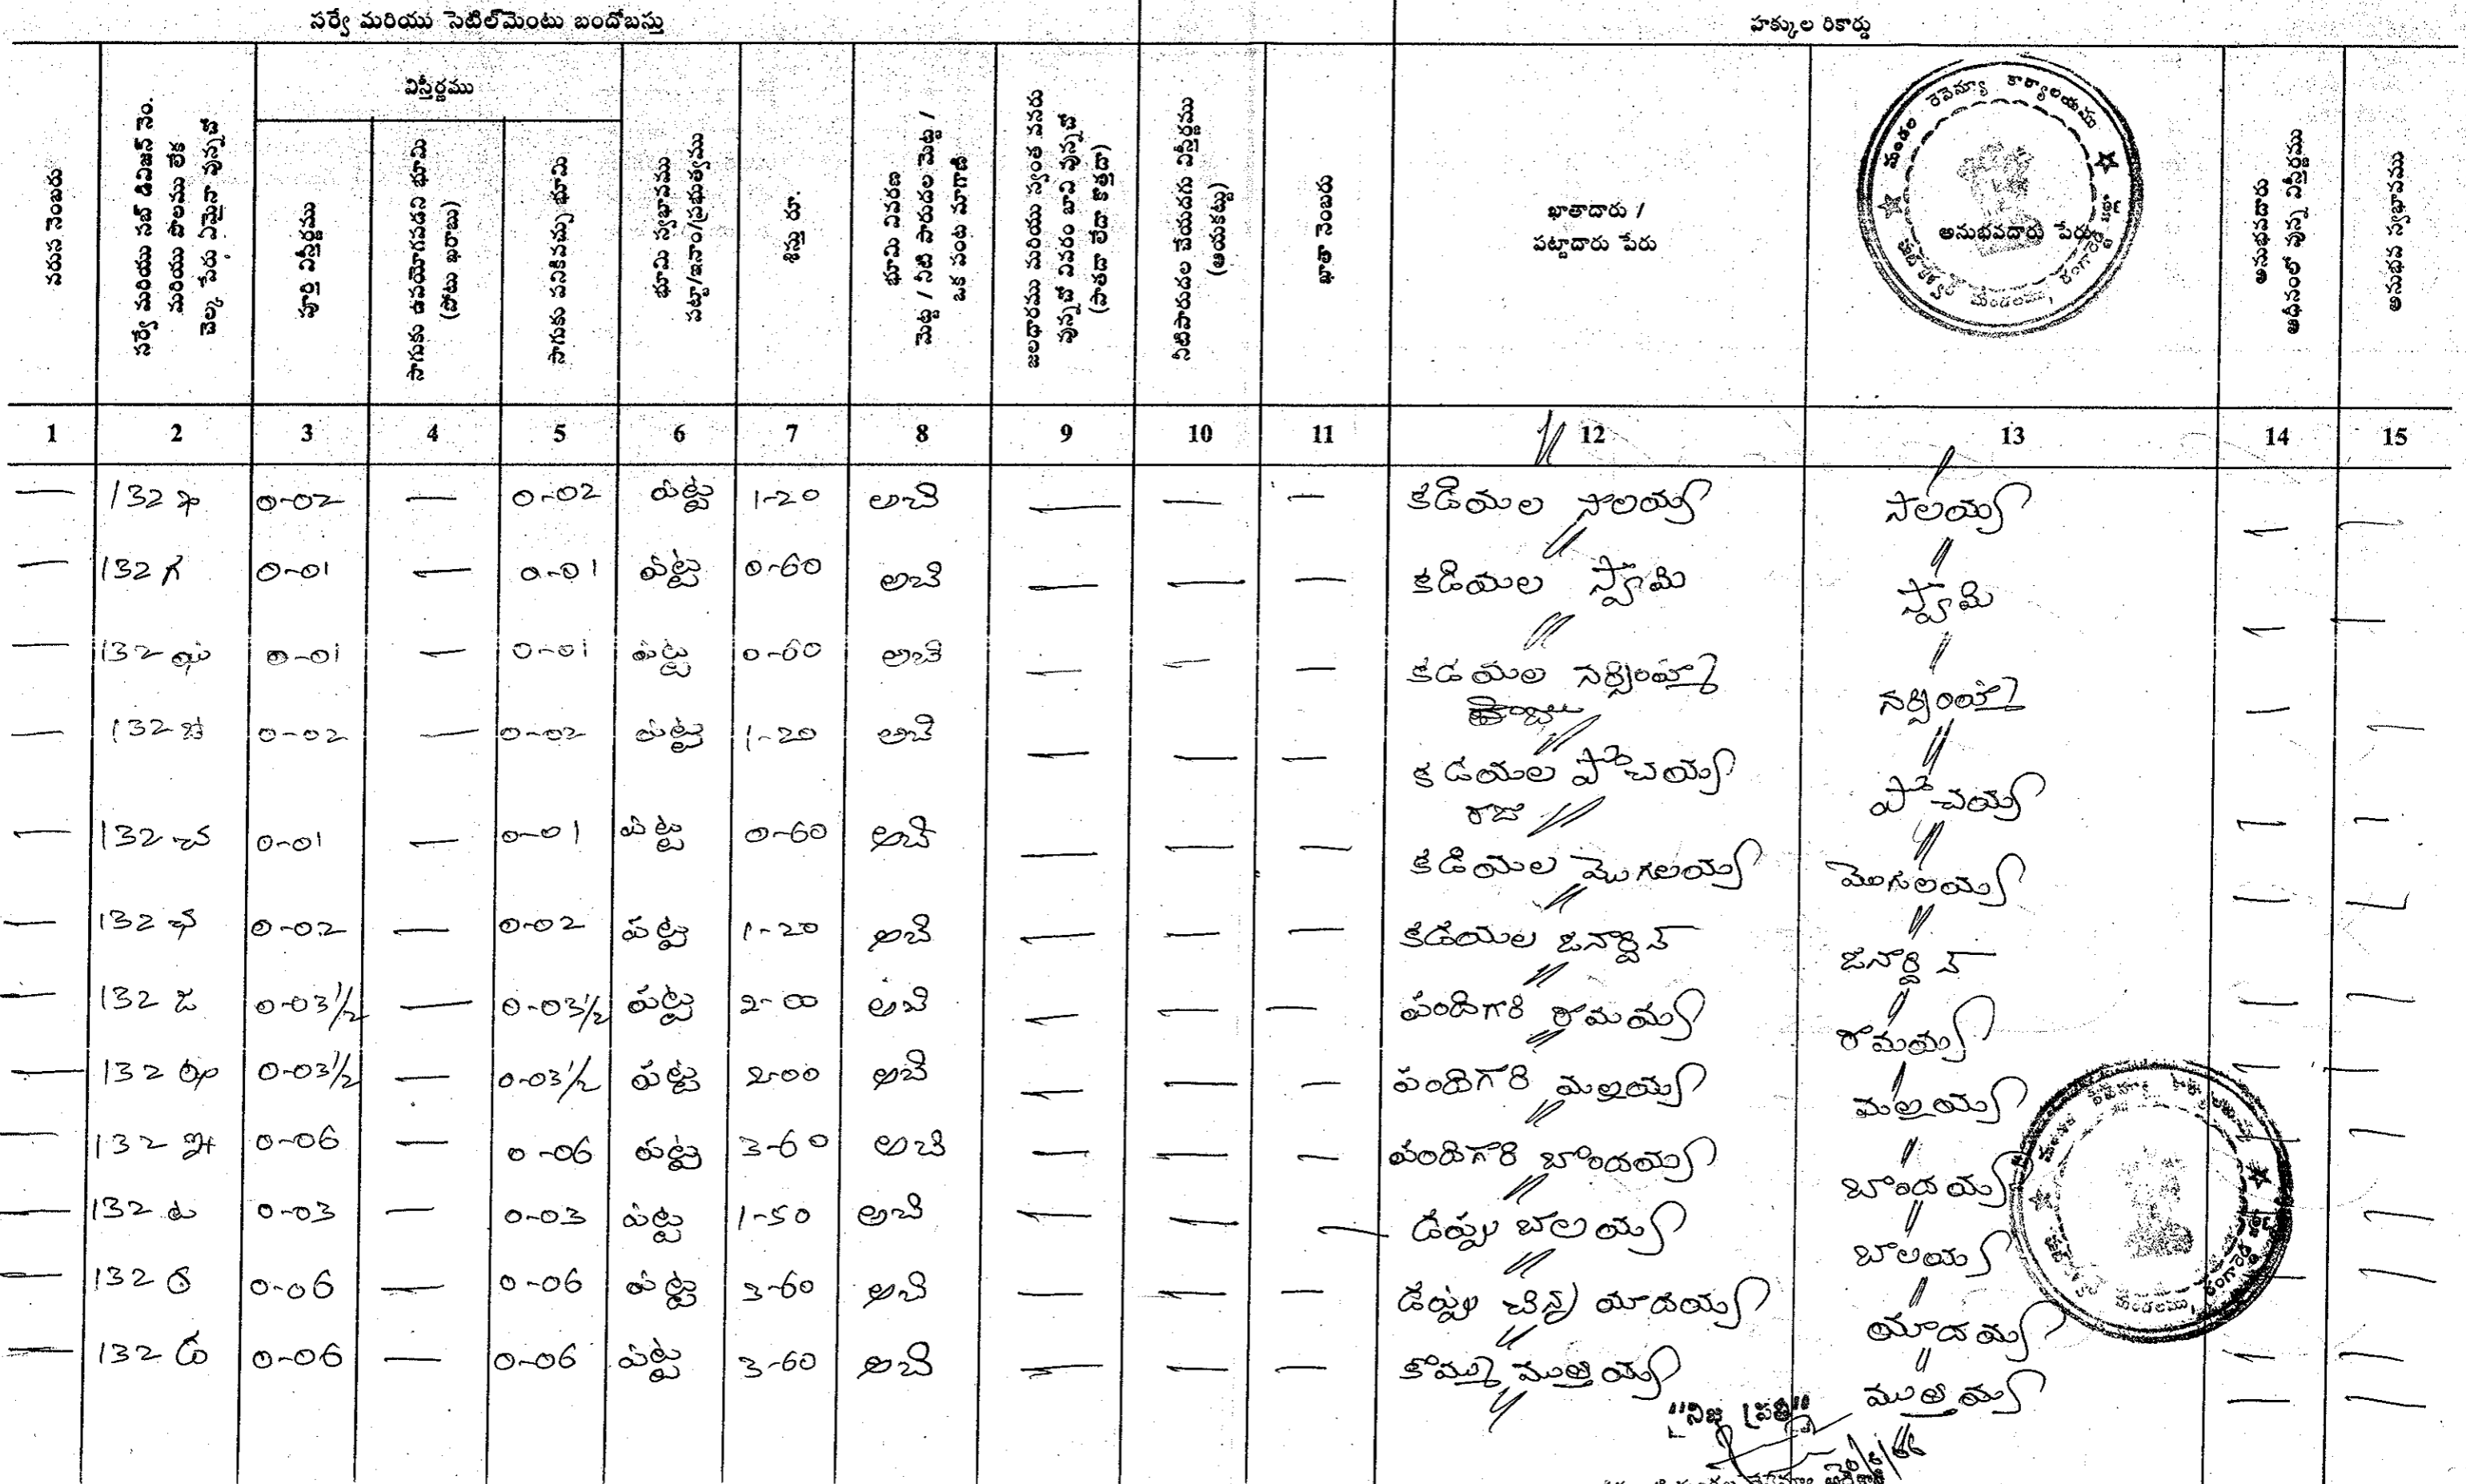 సర్వే మరియు సెటిల్‌మెంటు బందోబస్తు హక్కుల రికార్డు
వరుస నెంబరు
సర్వే మరియు సబ్ డివిజన్ నెం.
మరియు పొలము లేక
చెల్క పేరు ఏమైనా వున్నచో
విస్తీర్ణము
పూర్తి విస్తీర్ణము
సాగుకు ఉపయోగపడని భూమి
(పోటు ఖరాబు)
సాగుకు పనికివచ్చు భూమి
భూమి స్వభావము
పట్టా/ఇనాం/ప్రభుత్వము
శిస్తు రూ.
భూమి వివరణ
మెట్ట / నీటి పారుదల మెట్ట /
ఒక పంట మాగాణి
జలాధారము మరియు స్వంత వనరు
వున్నచో వివరం బావి వున్నచో
(పాతదా లేదా కొత్తదా)
నీటిపారుదల చేయదగు విస్తీర్ణము
(ఆయకట్టు)
ఖాతా నెంబరు
ఖాతాదారు /
పట్టాదారు పేరు
మండల రెవెన్యూ కార్యాలయము
అనుభవదారు పేరు
అనుభవదారు
ఆధీనంలో వున్న విస్తీర్ణము
అనుభవ స్వభావము
1 2 3 4 5 6 7 8 9 10 11 12 13 14 15
— 132 ఖ 0-02 — 0-02 పట్ట 1-20 అబి — — — కడియల సాలయ్య సాలయ్య — —
— 132 గ 0-01 — 0-01 పట్ట 0-60 అబి — — — కడియల స్వామి స్వామి — —
— 132 ఘ 0-01 — 0-01 పట్ట 0-60 అబి — — — కడయల నర్సింహ్మ నర్సింహ్మ — —
— 132 0-02 — 0-02 పట్ట 1-20 అబి — — — కడయల పోచయ్య పోచయ్య — —
రాజు
— 132 చ 0-01 — 0-01 పట్ట 0-60 అబి — — — కడియల మొగలయ్య మొగలయ్య — —
— 132 ఛ 0-02 — 0-02 పట్ట 1-20 అబి — — — కడియల జనార్ధన్ జనార్ధన్ — —
— 132 జ 0-03½ — 0-03½ పట్ట 2-00 అబి — — — పందిగారి రామయ్య రామయ్య — —
— 132 ఝ 0-03½ — 0-03½ పట్ట 2-00 అబి — — — పందిగారి మల్లయ్య మల్లయ్య — —
— 132 ఞ 0-06 — 0-06 పట్ట 3-60 అబి — — — పందిగారి బాందయ్య బాందయ్య — —
— 132 ట 0-03 — 0-03 పట్ట 1-50 అబి — — — డప్పు బాలయ్య బాలయ్య — —
— 132 ఠ 0-06 — 0-06 పట్ట 3-60 అబి — — — డప్పు చిన్న యాదయ్య యాదయ్య — —
— 132 డ 0-06 — 0-06 పట్ట 3-60 అబి — — — కొమ్ము ముత్తయ్య ముత్తయ్య — —
"నిజ ప్రతి"